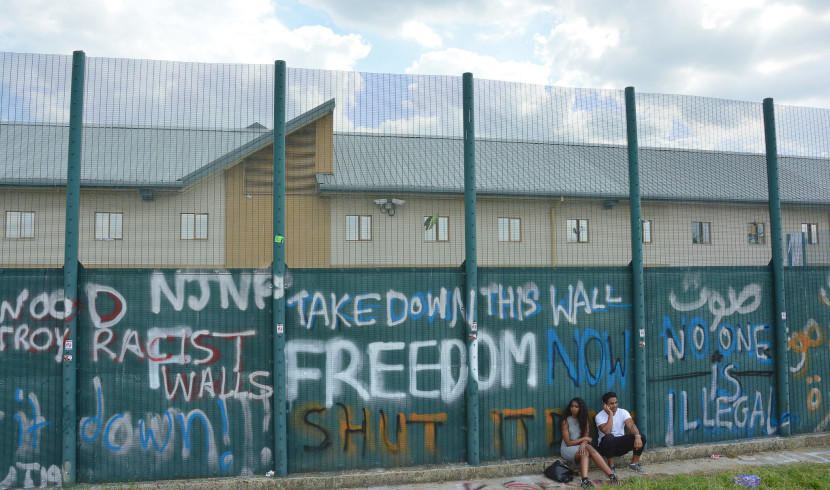 WOOD
TROY RACIST
WALLS
it down!
TAKE DOWN THIS WALL
FREEDOM NOW
SHUT IT
صوت
NO ONE
IS
ILLEGAL